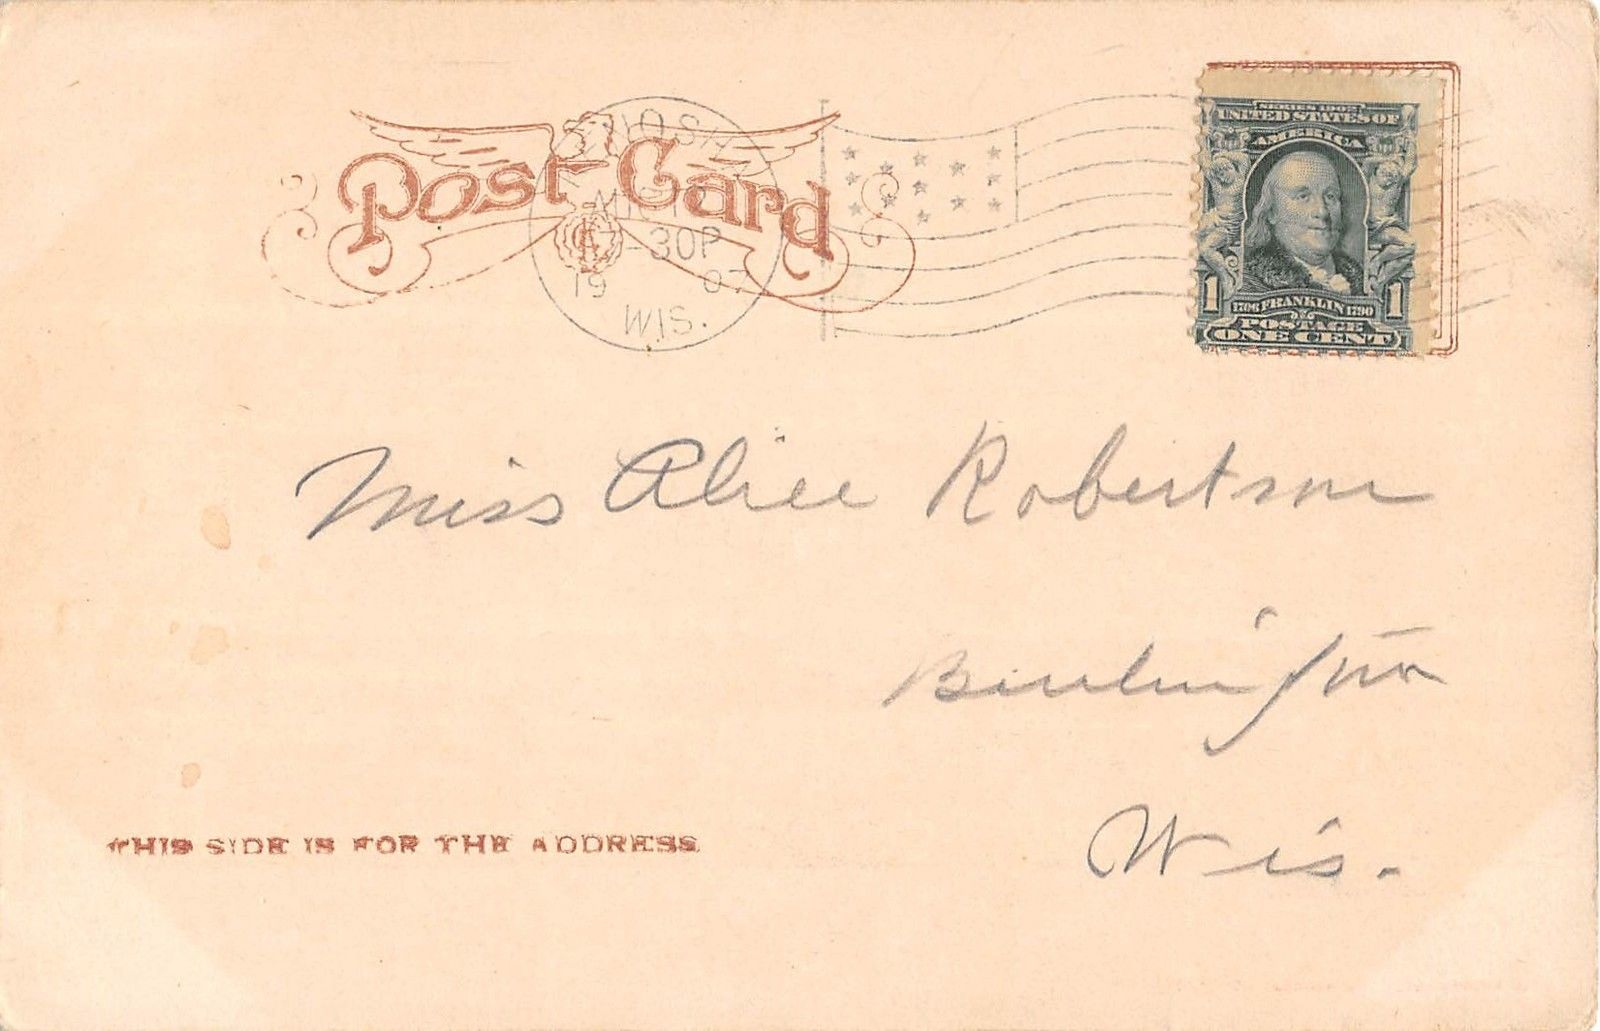 Post Card
KENOSHA
7-30P
19 07
WIS.
SERIES 1902
UNITED STATES OF
AMERICA
1 1706 FRANKLIN 1790 1
POSTAGE
ONE CENT
Miss Alice Robertson
Burlington
Wis.
THIS SIDE IS FOR THE ADDRESS